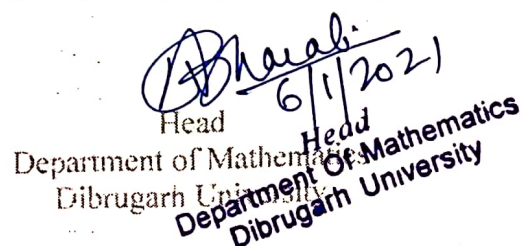 ABharali
6/1/2021
Head
Department of Mathematics
Dibrugarh University
Head
Department Of Mathematics
Dibrugarh University